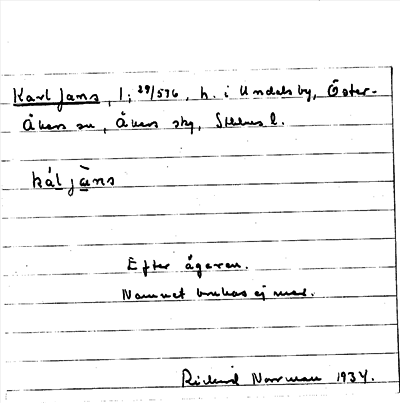 Karl Jans, l; 29/576, h. i Undalsby, Öster-
Åkers sn, Åkers skg, Sthlms l.
kál jàns
Efter ägaren.
Namnet brukas ej mer.
Rickard Norrman 1934.